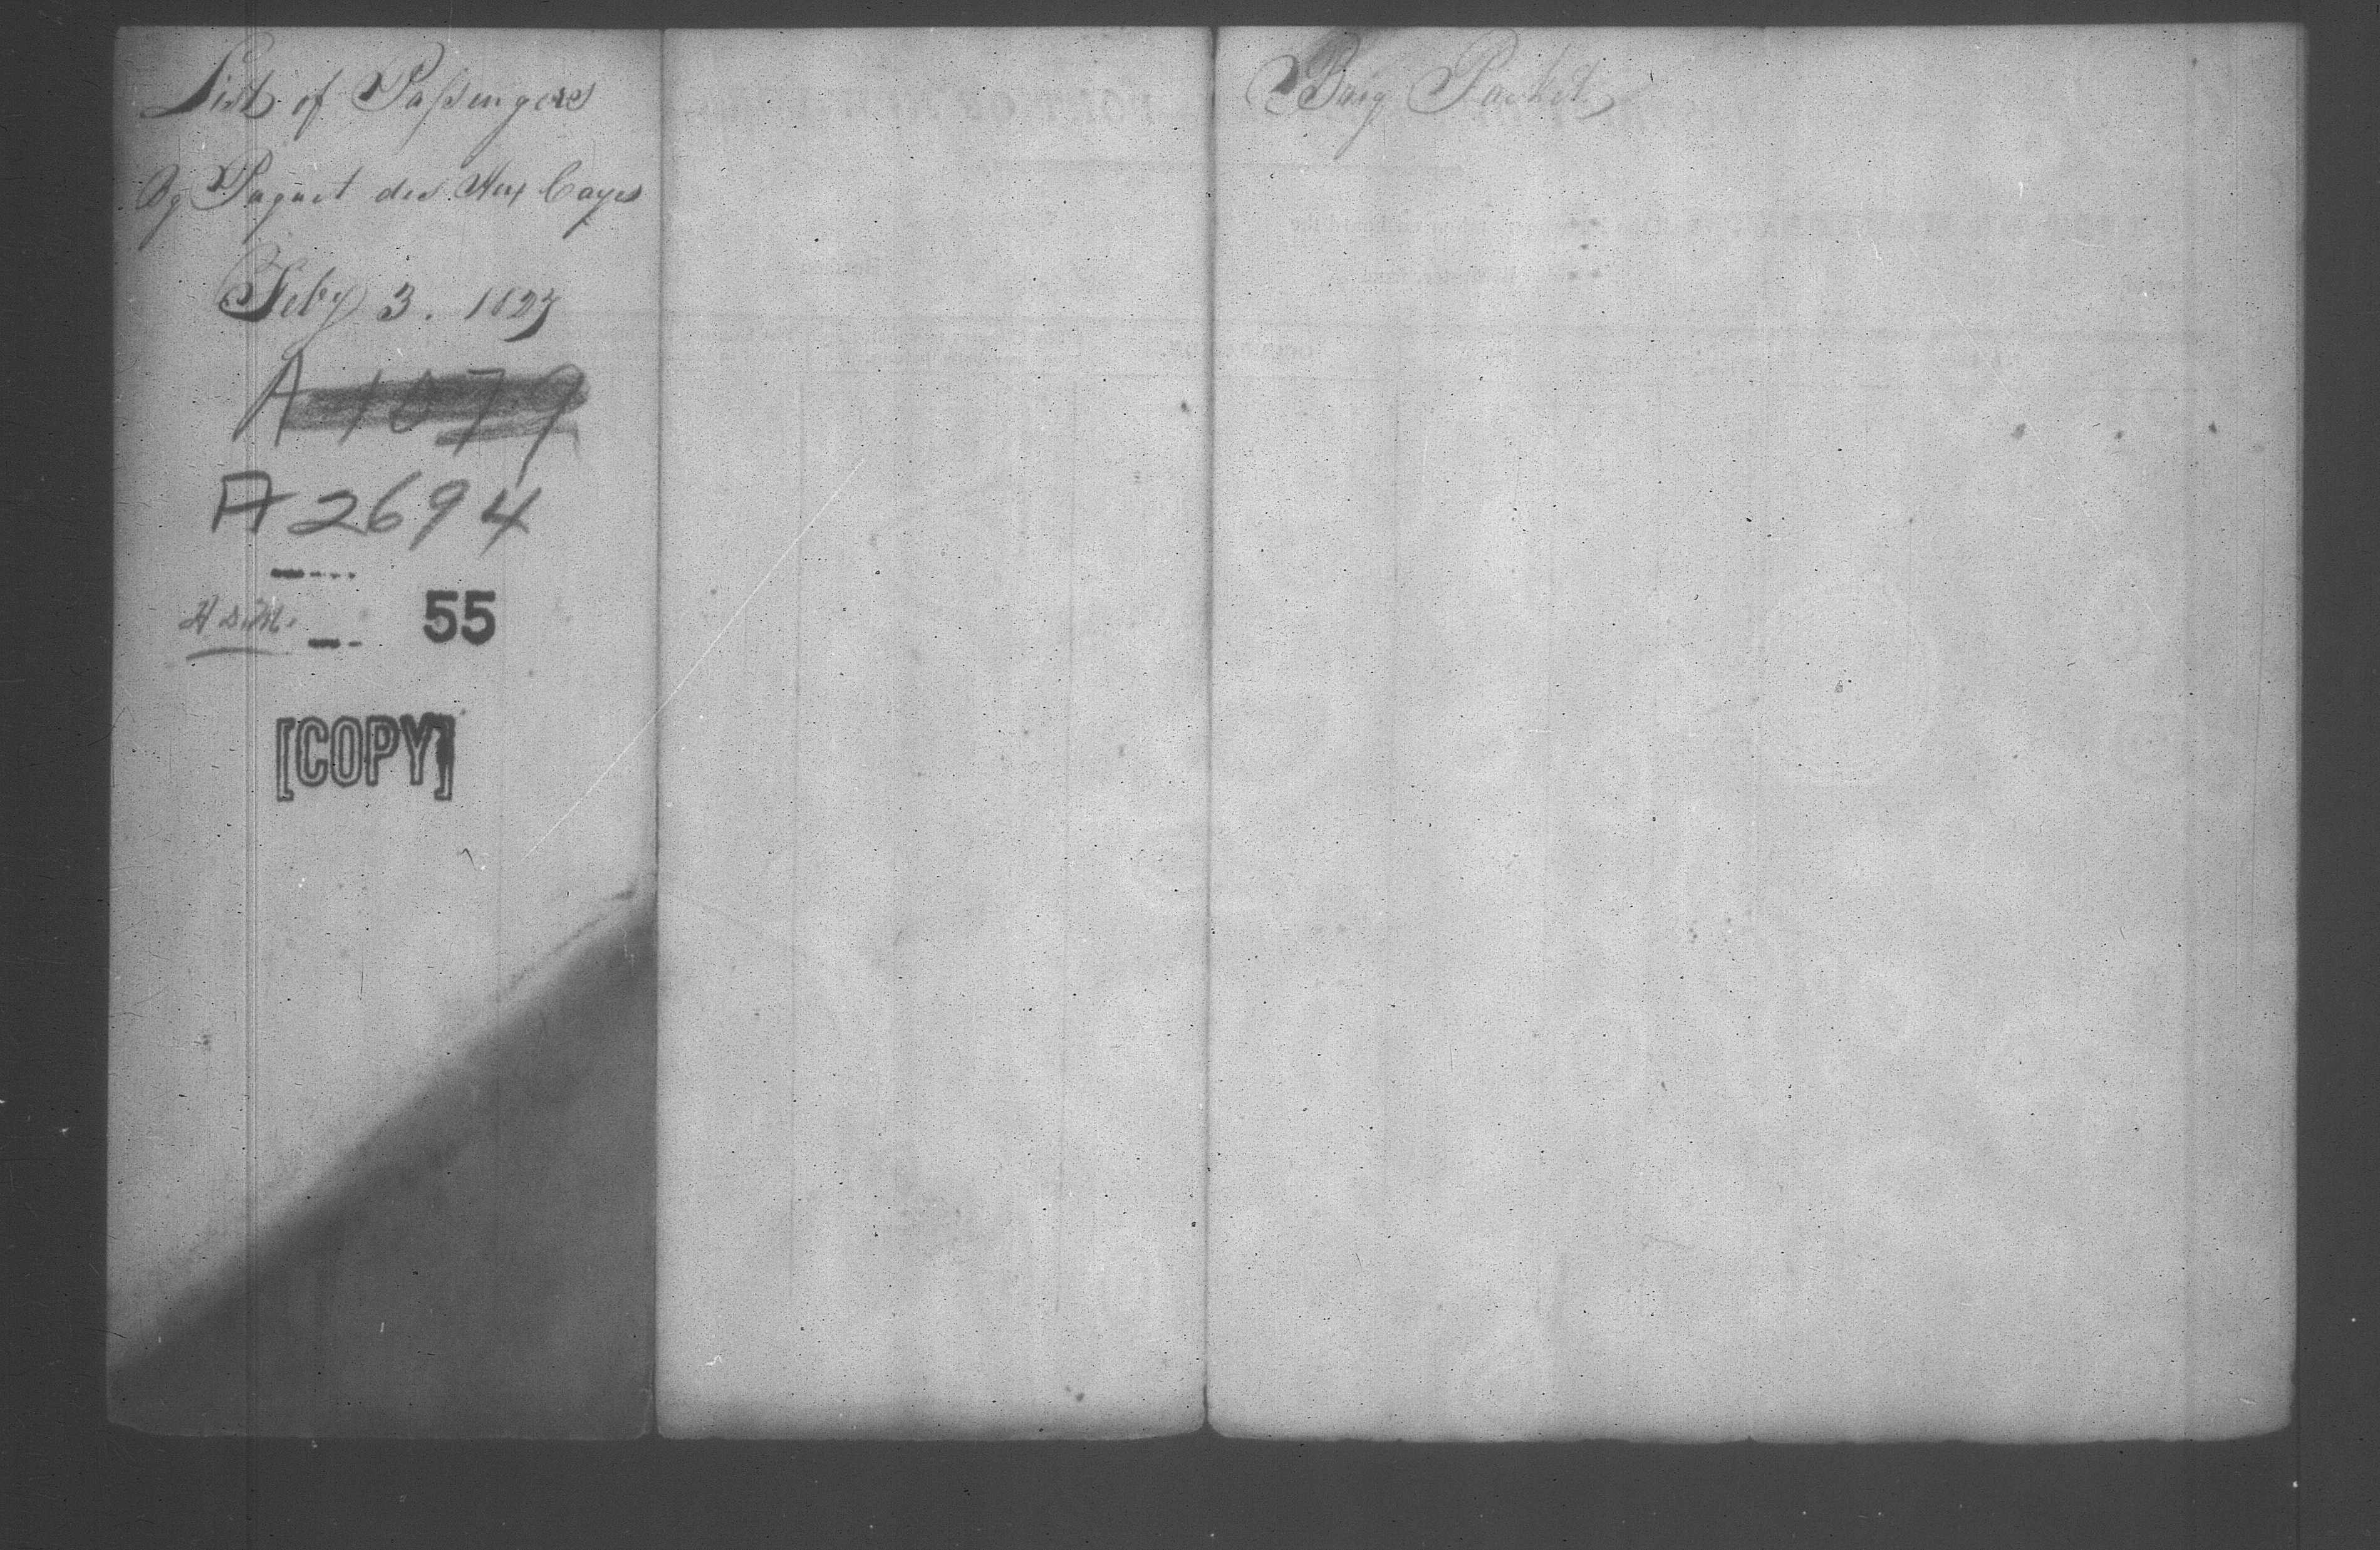 List of Passengers
Bg Paquet des Aux Cayes
Feby 3. 1827
A 1079
A 2694
55
[COPY]
Brig Packet